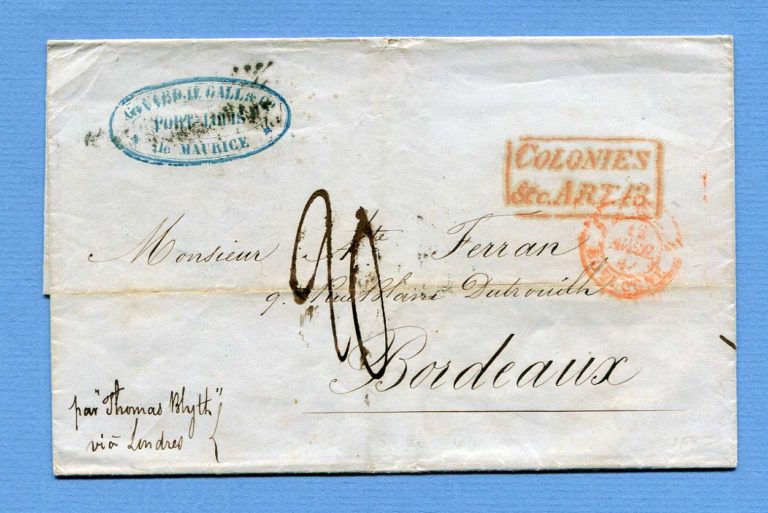 LE GALL & Co
PORT LOUIS
Ile MAURICE
COLONIES
&c. ART. 13
Monsieur Ate Ferran
9. Rue Blanc Dutrouilh
Bordeaux
20
par "Thomas Blyth"
viâ Londres